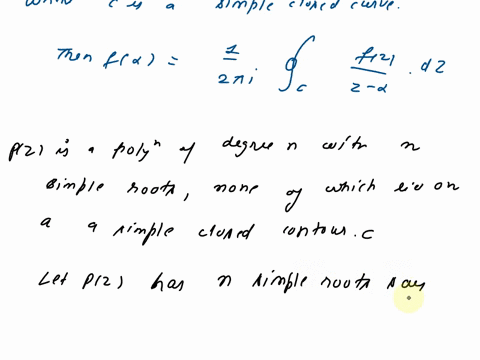 c is a simple closed curve.
Then f(α) = 1/2πi ∮c f(z)/z-α . dz
P(z) is a polyⁿ of degree n with n
simple roots, none of which lie on
a a simple closed contour. c
Let P(z) has n simple roots say